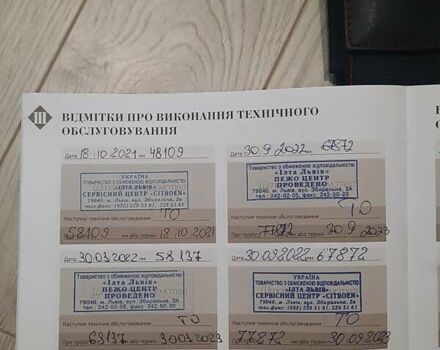 III ВІДМІТКИ ПРО ВИКОНАННЯ ТЕХНІЧНОГО
ОБСЛУГОВУВАННЯ
Дата 18.10.2021 км 48109
УКРАЇНА
ТОВАРИСТВО З ОБМЕЖЕНОЮ ВІДПОВІДАЛЬНІСТЮ
«ІЛТА ЛЬВІВ»
СЕРВІСНИЙ ЦЕНТР «CITROEN»
79040, м. Львів, вул. Збиральна, 2А
Наступне технічне обслуговування ТО
58109 км або термін 18.10.202
Дата 30.9.2022 км 67872
Товариство з обмеженою відповідальністю
«Ілта Львів»
ПЕЖО ЦЕНТР
ПРОВЕДЕНО
79040, м. Львів, вул. Збиральна, 2А
тел. 242-02-05, факс 242-50-20
Наступне технічне обслуговування ТО
77872 км або термін 30.9.2023
Дата 30.03.2022 км 58137
Товариство з обмеженою відповідальністю
«Ілта Львів»
ПЕЖО ЦЕНТР
ПРОВЕДЕНО
79040, м. Львів, вул. Збиральна, 2А
тел. 242-02-05, факс 242-50-20
Наступне технічне обслуговування ТО
При пробігу 68137 км або термін 30.03.2023
Дата 30.09.2022 км 67872
УКРАЇНА
ТОВАРИСТВО З ОБМЕЖЕНОЮ ВІДПОВІДАЛЬНІСТЮ
«ІЛТА ЛЬВІВ»
СЕРВІСНИЙ ЦЕНТР «CITROEN»
79040, м. Львів, вул. Збиральна, 2А
Наступне технічне обслуговування ТО
При пробігу 77872 км або термін 30.09.2023